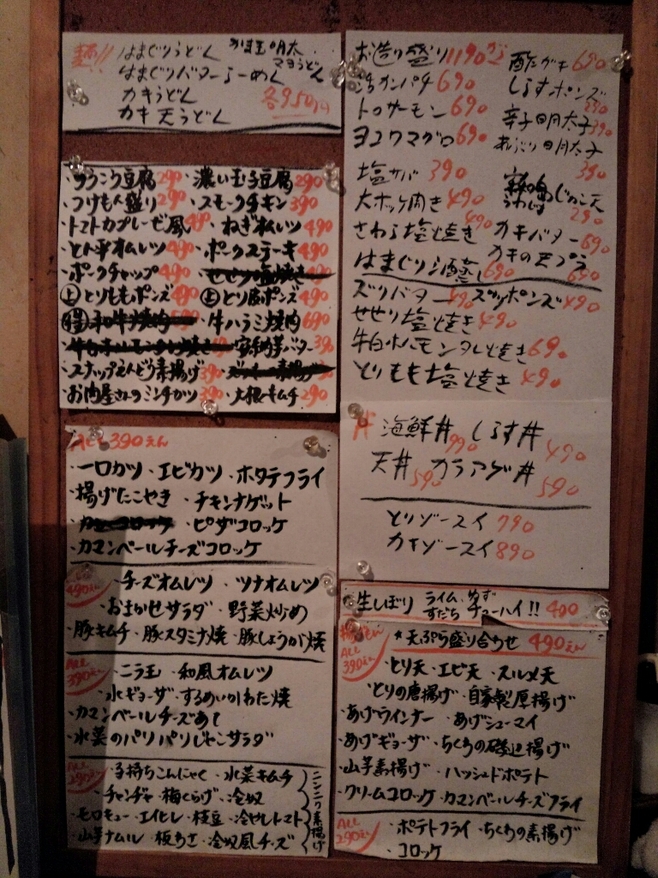 麺!! はまぐりうどん かま玉明太マヨうどん
はまぐりバターらーめん
カキうどん 各950円
カキ天うどん
・ざるこう豆腐290 ・濃い玉子豆腐290
・つけもん盛り290 ・スモークチキン390
・トマトカプレーゼ風490 ・ねぎオムレツ490
・とん平オムレツ490 ・ポークステーキ490
・ポークチャップ490
・上とりももポンズ490 ・上とり豚ポンズ490
・牛ハラミ焼肉690
・安納芋バター390
・スナップえんどう素揚げ390
・お肉屋さんのミンチカツ390 ・大根キムチ290
ALL 390えん
・一口カツ ・エビカツ ・ホタテフライ
・揚げたこやき ・チキンナゲット
・ピザコロッケ
・カマンベールチーズコロッケ
ALL 490えん ・チーズオムレツ ・ツナオムレツ
・おまかせサラダ ・野菜炒め
・豚キムチ ・豚スタミナ焼 ・豚しょうが焼
ALL 390えん ・ニラ玉 ・和風オムレツ
・水ギョーザ ・するめいかわた焼
・カマンベールチーズあし
・水菜のパリパリじゃこサラダ
ALL 290えん ・子持ちこんにゃく ・水菜キムチ
・チャンヂャ ・梅くらげ ・冷奴
・モロキュー ・エイヒレ ・枝豆 ・冷やしトマト
・山芋ナムル ・板わさ ・冷奴風チーズ
ニンニク素揚げ
お造り盛り1190から 酢ガキ690
カンパチ690 しらすポンズ390
トロサーモン690 辛子明太子390
ヨコワマグロ690 あぶり明太子390
塩サバ390
大ホッケ開き490 じゃこ天290
さわら塩焼き490 カキバター690
はまぐり酒蒸し690 カキの天プラ690
ズリバター490 ズリポンズ490
せせり塩焼き490
牛白ホルモンタレ焼き690
とりもも塩焼き490
丼 海鮮丼990 しらす丼490
天丼590 カラアゲ丼590
とりゾースイ790
カキゾースイ890
生しぼり ライム、ゆず すだち チューハイ!! 400
*天ぷら盛り合わせ 490えん
ALL 390えん ・とり天 ・エビ天 ・スルメ天
・とりの唐揚げ ・自家製厚揚げ
・あげウインナー ・あげシューマイ
・あげギョーザ ・ちくわの磯辺揚げ
・山芋素揚げ ・ハッシュドポテト
・クリームコロッケ ・カマンベールチーズフライ
ALL 290えん ・ポテトフライ ・ちくわの素揚げ
・コロッケ